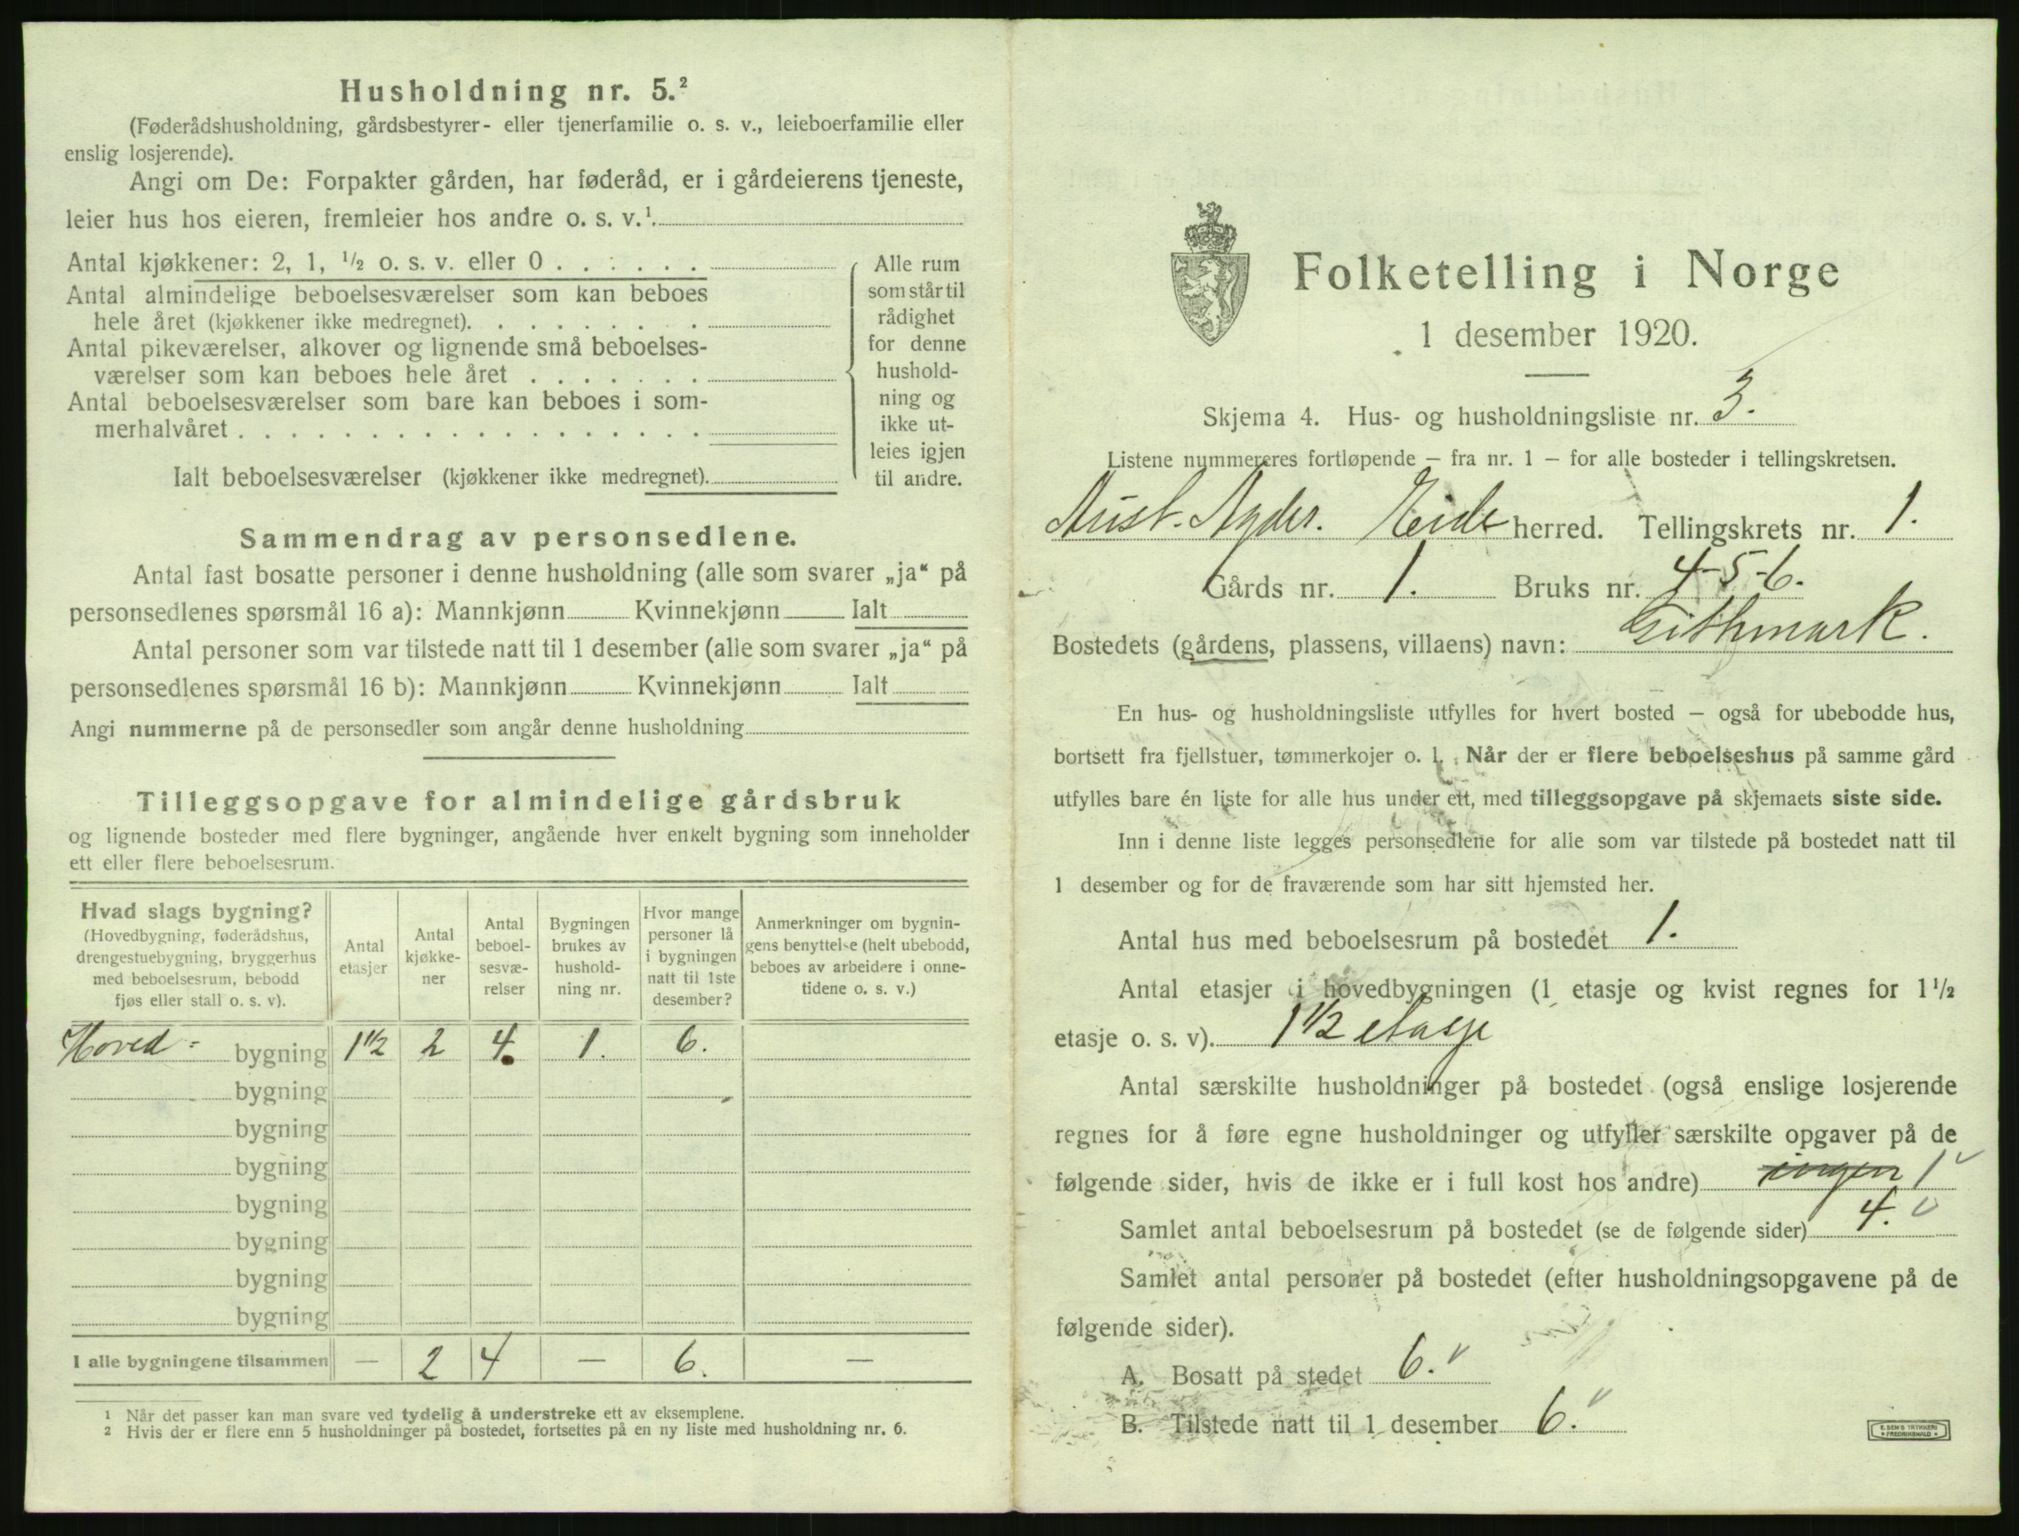 Husholdning nr. 5.²
(Føderådshusholdning, gårdsbestyrer- eller tjenerfamilie o. s. v., leieboerfamilie eller
enslig losjerende).
Angi om De: Forpakter gården, har føderåd, er i gårdeierens tjeneste,
leier hus hos eieren, fremleier hos andre o. s. v.¹.
Antal kjøkkener: 2, 1, ½ o. s. v. eller 0 . . . . . .
Antal almindelige beboelsesværelser som kan beboes
hele året (kjøkkener ikke medregnet). . . . . . . . .
Antal pikeværelser, alkover og lignende små beboelses-
værelser som kan beboes hele året . . . . . . .
Antal beboelsesværelser som bare kan beboes i som-
merhalvåret . . . . . . . . . . . . . . . . . .
Ialt beboelsesværelser (kjøkkener ikke medregnet).
Alle rum
som står til
rådighet
for denne
hushold-
ning og
ikke ut-
leies igjen
til andre.
Sammendrag av personsedlene.
Antal fast bosatte personer i denne husholdning (alle som svarer „ja“ på
personsedlenes spørsmål 16 a): Mannkjønn Kvinnekjønn Ialt
Antal personer som var tilstede natt til 1 desember (alle som svarer „ja“ på
personsedlenes spørsmål 16 b): Mannkjønn Kvinnekjønn Ialt
Angi nummerne på de personsedler som angår denne husholdning
Tilleggsopgave for almindelige gårdsbruk
og lignende bosteder med flere bygninger, angående hver enkelt bygning som inneholder
ett eller flere beboelsesrum.
Hvad slags bygning?
(Hovedbygning, føderådshus,
drengestuebygning, bryggerhus
med beboelsesrum, bebodd
fjøs eller stall o. s. v).
Antal
etasjer
Antal
kjøkke-
ner
Antal
beboel-
sesvæ-
relser
Bygningen
brukes av
hushold-
ning nr.
Hvor mange
personer lå
i bygningen
natt til 1ste
desember?
Anmerkninger om bygnin-
gens benyttelse (helt ubebodd,
beboes av arbeidere i onne-
tidene o. s. v.)
Hoved- bygning 1½ 2 4. 1. 6.
bygning
bygning
bygning
bygning
bygning
bygning
bygning
I alle bygningene tilsammen — 2 4 — 6. —
1 Når det passer kan man svare ved tydelig å understreke ett av eksemplene.
2 Hvis der er flere enn 5 husholdninger på bostedet, fortsettes på en ny liste med husholdning nr. 6.
Folketelling i Norge
1 desember 1920.
Skjema 4. Hus- og husholdningsliste nr. 3.
Listene nummereres fortløpende — fra nr. 1 — for alle bosteder i tellingskretsen.
Aust. Agder. Eide herred. Tellingskrets nr. 1.
Gårds nr. 1. Bruks nr. 4-5-6.
Bostedets (gårdens, plassens, villaens) navn: Githmark.
En hus- og husholdningsliste utfylles for hvert bosted — også for ubebodde hus,
bortsett fra fjellstuer, tømmerkojer o. l. Når der er flere beboelseshus på samme gård
utfylles bare én liste for alle hus under ett, med tilleggsopgave på skjemaets siste side.
Inn i denne liste legges personsedlene for alle som var tilstede på bostedet natt til
1 desember og for de fraværende som har sitt hjemsted her.
Antal hus med beboelsesrum på bostedet 1.
Antal etasjer i hovedbygningen (1 etasje og kvist regnes for 1½
etasje o. s. v). 1½ etasje
Antal særskilte husholdninger på bostedet (også enslige losjerende
regnes for å føre egne husholdninger og utfyller særskilte opgaver på de
følgende sider, hvis de ikke er i full kost hos andre) ingen 1
Samlet antal beboelsesrum på bostedet (se de følgende sider) 4.
Samlet antal personer på bostedet (efter husholdningsopgavene på de
følgende sider).
A. Bosatt på stedet 6.
B. Tilstede natt til 1 desember 6.